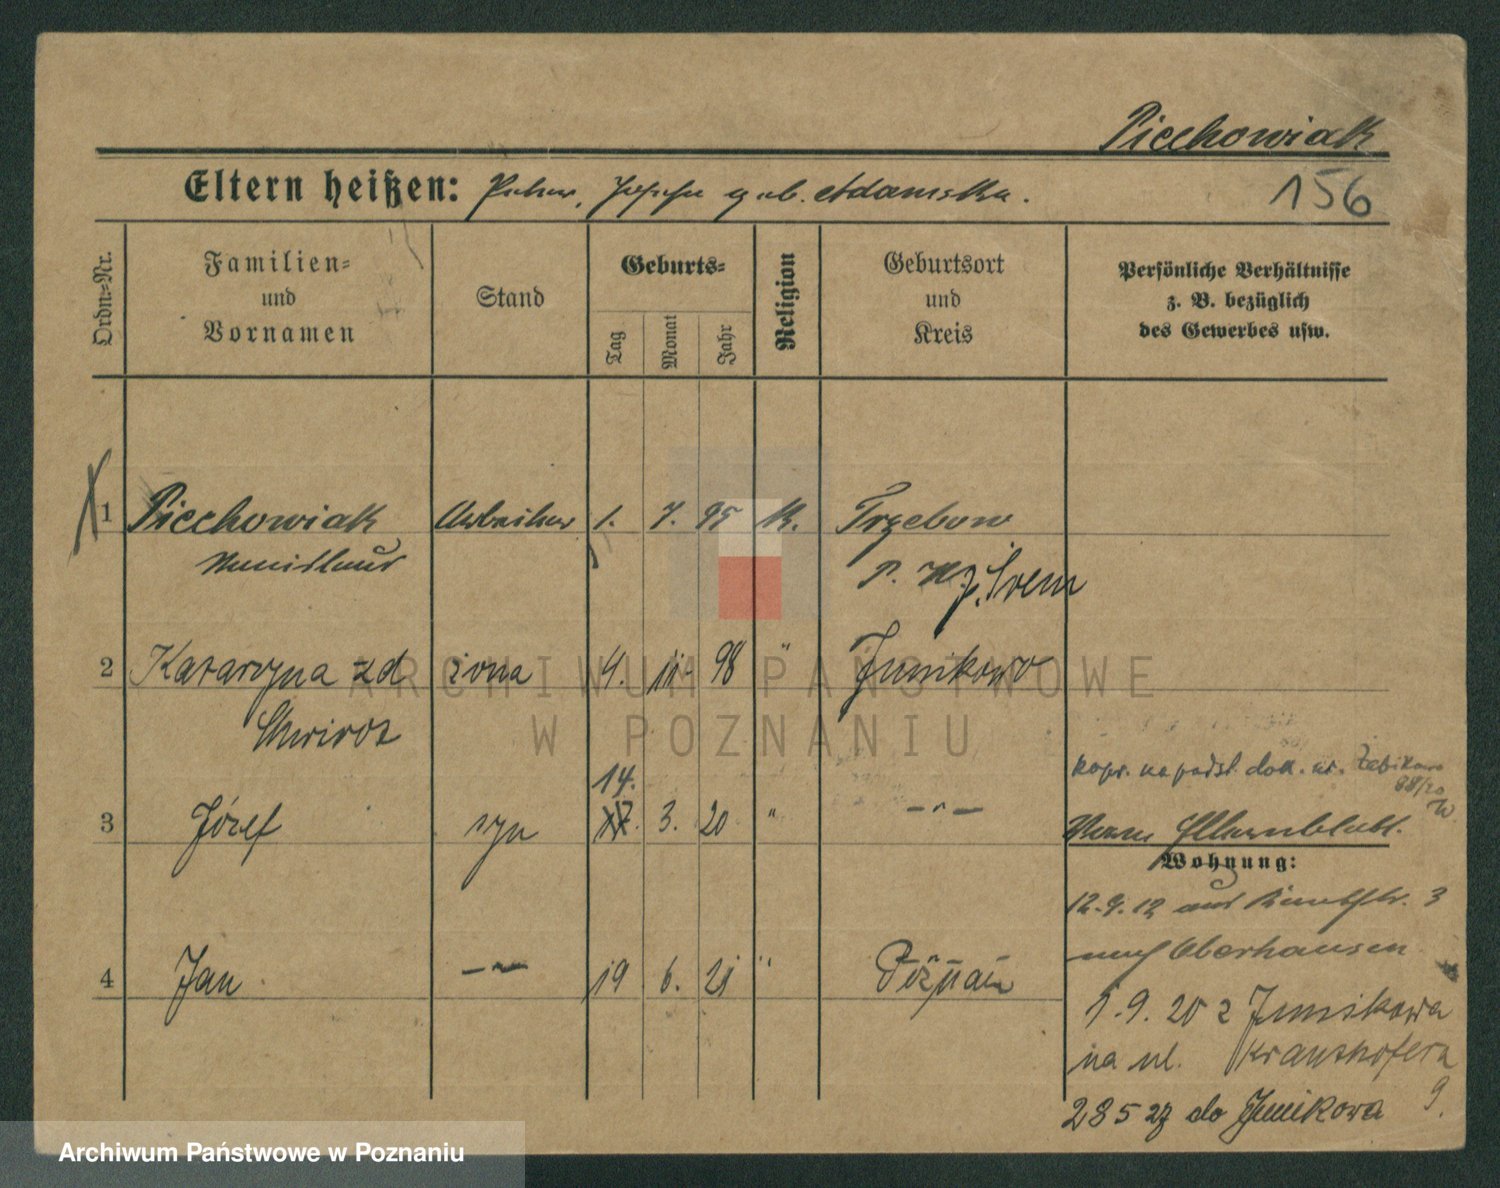 Piechowiak
Eltern heißen: Peter, Josepha geb. Adamska.
156
Ordn.-Nr.
Familien- und Vornamen
Stand
Geburts-
Tag
Monat
Jahr
Religion
Geburtsort und Kreis
Persönliche Verhältnisse z. B. bezüglich des Gewerbes usw.
1 Piechowiak Arbeiter 1. 7. 95 K. Trzebow
Stanislaus
p. Śrem
2 Katarzyna zd żona 4. 11. 98 " Junikowo
14.
kopr. na podst. dok. ur. Żabikowo
88/20
3 Józef syn 3. 20 " — " —
Wohnung:
12.9.12 aus 3
nach Oberhausen
4 Jan — " — 19 6. 21 " Poznań
1.9.20 z Junikowa
na ul. Kranthofera
9.
285 23 do Junikowa
ARCHIWUM PAŃSTWOWE
W POZNANIU
Archiwum Państwowe w Poznaniu